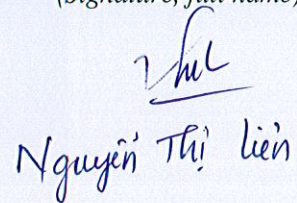 (Signature, full name)
Nguyễn Thị Liên